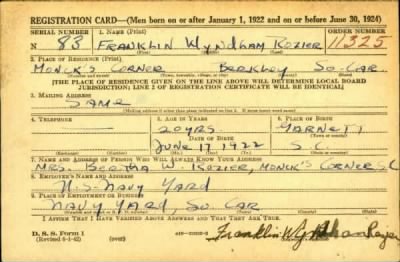 REGISTRATION CARD—(Men born on or after January 1, 1922 and on or before June 30, 1924)
SERIAL NUMBER 1. NAME (Print) ORDER NUMBER
N 83 FRANKLIN WYNDHAM ROZIER 11325
(First) (Middle) (Last)
2. PLACE OF RESIDENCE (Print)
MONCK'S CORNER BERKLEY SO-CAR.
(Number and street) (Town, township, village, or city) (County) (State)
[THE PLACE OF RESIDENCE GIVEN ON THE LINE ABOVE WILL DETERMINE LOCAL BOARD
JURISDICTION; LINE 2 OF REGISTRATION CERTIFICATE WILL BE IDENTICAL]
3. MAILING ADDRESS
SAME
[Mailing address if other than place indicated on line 2. If same insert word same]
4. TELEPHONE 5. AGE IN YEARS 6. PLACE OF BIRTH
20 YRS. GARNETT
DATE OF BIRTH (Town or county)
JUNE 17 1922 S.C.
(Exchange) (Number) (Mo.) (Day) (Yr.) (State or country)
7. NAME AND ADDRESS OF PERSON WHO WILL ALWAYS KNOW YOUR ADDRESS
MRS. BERTHA W. ROZIER, MONCK'S CORNER S.C.
8. EMPLOYER'S NAME AND ADDRESS
U.S. NAVY YARD
9. PLACE OF EMPLOYMENT OR BUSINESS
NAVY YARD, SO. CAR
(Number and street or R. F. D. number) (Town) (County) (State)
I AFFIRM THAT I HAVE VERIFIED ABOVE ANSWERS AND THAT THEY ARE TRUE.
D. S. S. Form 1
(Revised 6-9-42) (over)
Franklin Wyndham Rozier